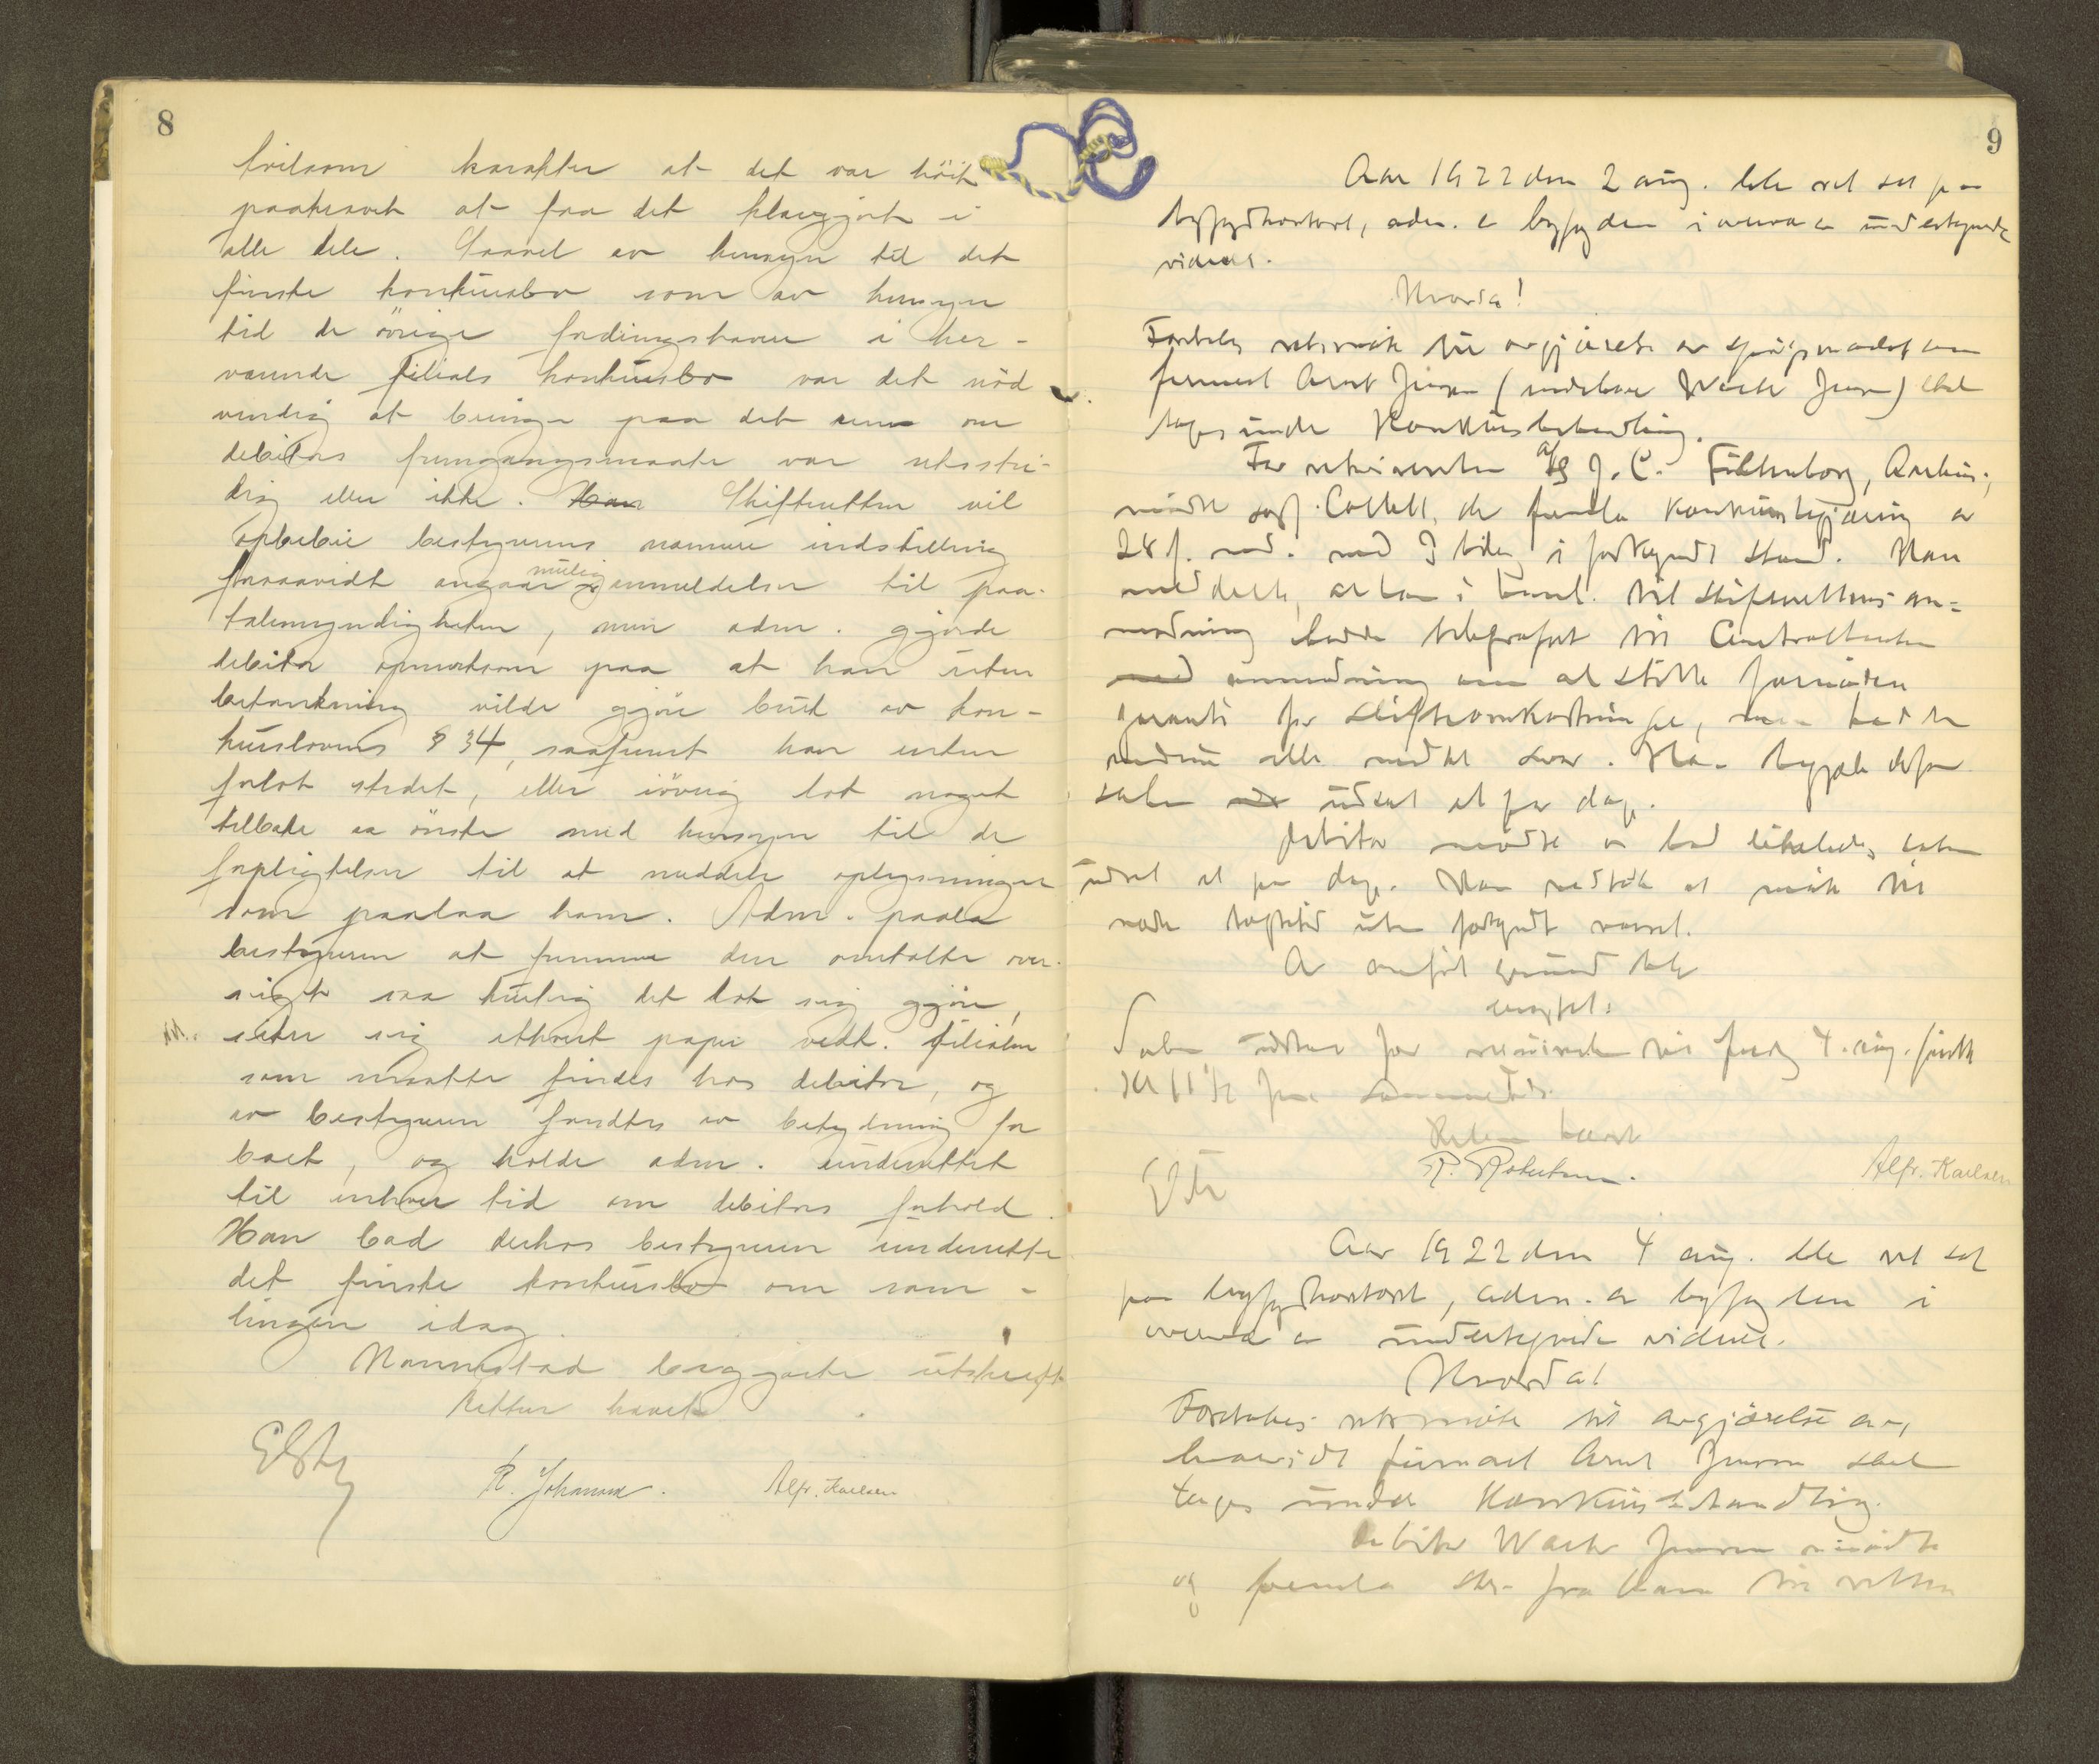 8
tvilsom karakter at det var höist
paakrævet at faa det klargjort i
alle dele. Saavel av hensyn til det
finske konkursbo som av hensyn
til de övrige fordringshavere i her-
værende filials konkursbo var det nöd
vendig at bringe paa det rene om
debitors fremgangsmaate var retsstri-
dig eller ikke. Han Skifteretten vil
opbebie bestyrerens nærmere indstilling
forsaavidt angaar mulig anmeldelse til paa-
talemyndigheten, men adm. gjorde
debitor opmerksom paa at han uten
betænkning vilde gjöre bruk av kon-
kurslovens § 34, saafremt han enten
forlot stedet, eller iövrig lot noget
tilbake aa önske med hensyn til de
forpligtelser til at meddele oplysninger
som paalaa ham. Adm. paala
bestyreren at fremme den omtalte over-
sigt saa hurtig det lot sig gjöre,
sikre sig ethvert papir vedk. filialen
som maatte findes hos debitor, og
av bestyreren fandtes av betydning for
boet, og holde adm. underrettet
til enhver tid om debitors forhold.
Han bad derhos bestyreren underrette
det finske konkursbo om sam-
lingen idag.
Mannestad begjærte utskrift
Retten hævet
R. Johansen. Alfr. Karlsen
9
Aar 1922 den 2 aug. ble ret sat paa
byfogdkontoret, adm. av byfogden i overvær av undertegnede
vidner.
Hvorda!
Foretokes retsmöte til avgjörelse av spörsmaalet om
firmaet Arnt Jensen (indehaver Jensen) skal
tages under Konkursbehandling.
For rekvirenten A/S J. C. Filtenborg, Aarhus,
mödte sagf. Collett, der fremla konkursbegjæring av
28 f. md. med 3 bilag i forkyndt stand. Han
meddelte, at han i henh. til skifterettens an-
modning hadde telegrafert til Centralbanken
med anmodning om at stille fornöden
garanti for skifteomkostninger, men hadde
endnu ikke mottat svar. Han begjærte derfor
saken utsat et par dage.
Debitor mödte og bad likeledes saken
utsat et par dage. Han vedtok at möte til
næste tægtetid uten forkyndt varsel.
Av anfört grund blev
avsagt:
Saken utstaar for rekvirenten til fredag 4. aug. förstk
kl 11 1/2 form sammesteds.
Retten hævet
R. Robertsen. Alfr. Karlsen
Aar 1922 den 4 aug. ble ret sat
paa byfogdkontoret, adm. av byfogden i
overvær av undertegnede vidner.
Hvorda!
Foretokes retsmöte til avgjörelse av,
hvorvidt firmaet Arnt Jensen skal
tages under Konkursbehandling.
Debitor Jensen mödte
og fremla skr. fra ham til retten